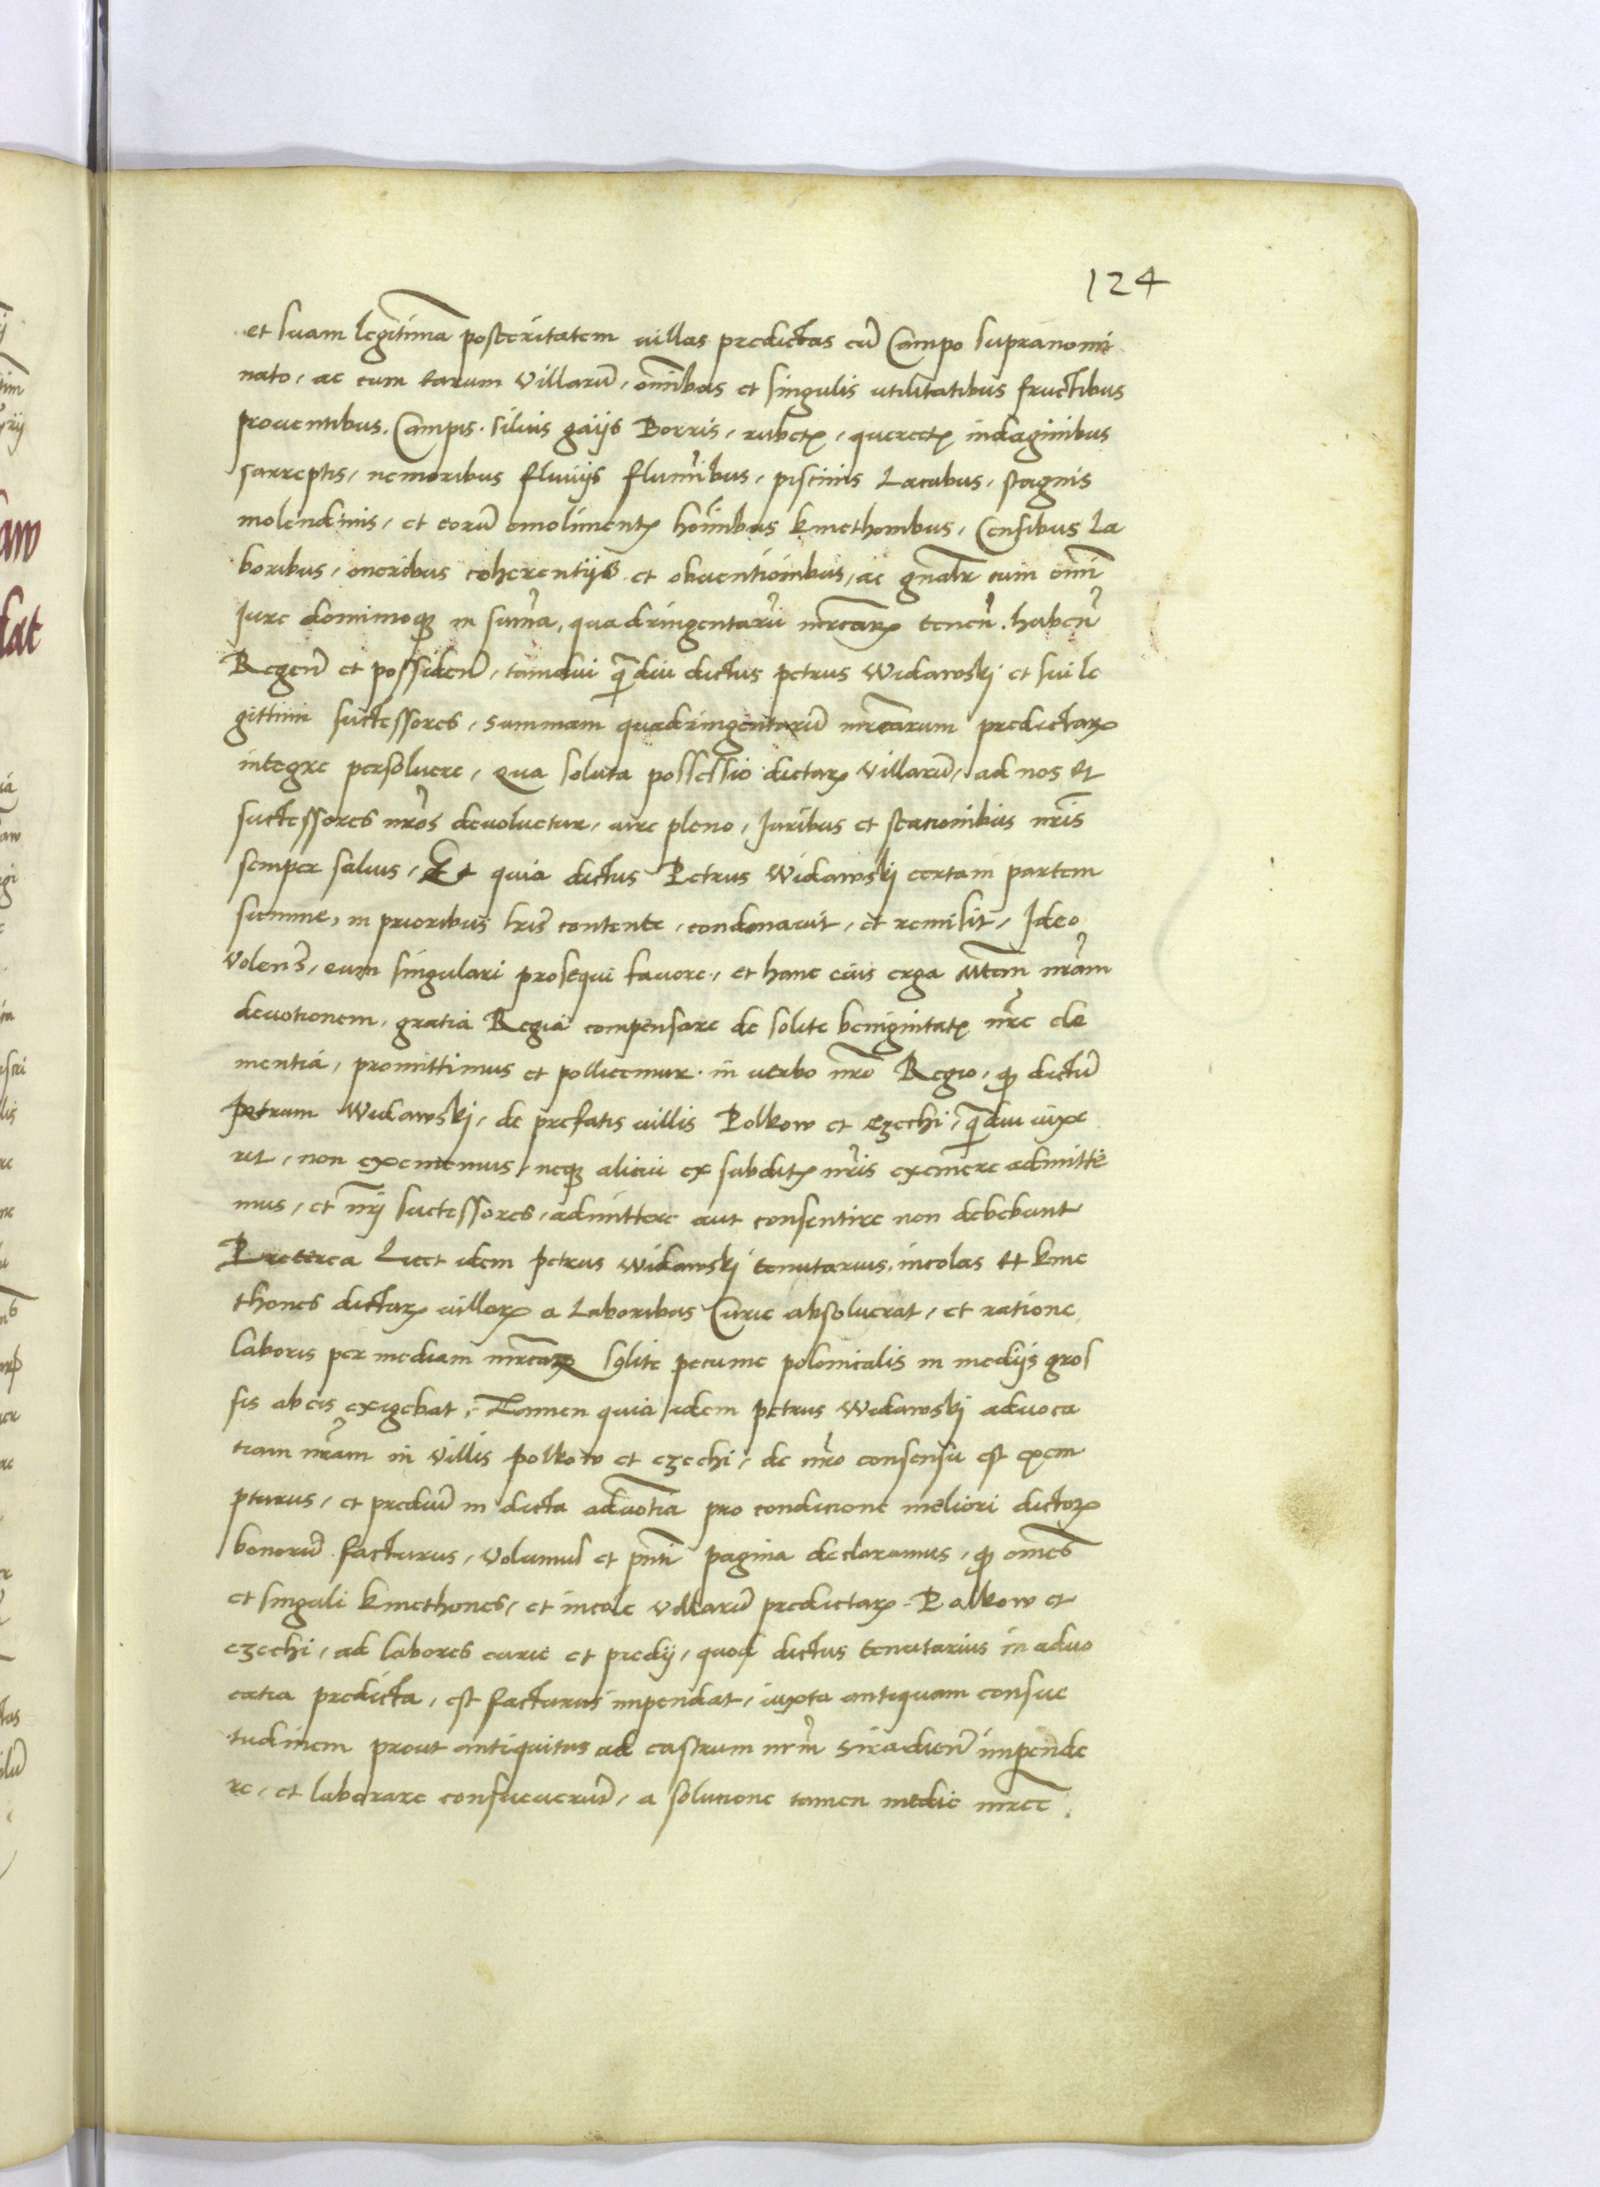 124
et suam legitimā posteritatem villas predictas cū Campo supranomi
nato, ac cum earum villarū, omībus et singulis utilitatibus fructibus
proventibus. Campis. silvis gaijs Borris, rubetꝭ, quercetꝭ indaginibus
sarreptis, nemoribus fluvijs flumībus, piscinis Lacubus, stagnis
molendinis, et eorū emolimentꝭ hoīnibus kmethonibus, Censibus La
boribus, oneribus coherentijs et obventioībus, ac gnālr cum omī
Iure dominioqꝫ in sum̄a, quadringentarū mrcarꝝ tenen̄. haben̄
Regen̄ et possiden̄, tamdiu q̄diu dictus petrus Widawskj et sui le
gittimi successores, summam quadringentarū mrcarum predictarꝝ
integre persolvere, Qua soluta possessio dictarꝝ villarū, ad nos et
successores nr̄os devolvetur, iure pleno, Iuribus et stacionibus nr̄is
semper salvis, Et quia dictus Petrus Widawskj certam partem
summe, in prioribus lr̄is contente, condonavit, et remisit, Ideo
volen̄s, eum singulari prosequi favore, et hanc eius erga Mtēm nr̄am
devotionem, gratia Regia compensare de solite benignitatꝭ nr̄e cle
mentia, promittimus et pollicemur. in verbo nr̄o Regio, qꝫ dictū
petrum Widawskj, de prefatis villis Polkow et czechi, q̄diu vixe
rit, non eximemus, neqꝫ alicui ex subditꝭ nr̄is eximere admitte
mus, et nr̄j successores, admittere aut consentire non debebunt
Preterea Licet idem petrus Widawskj tenutarius, incolas et kme
thones dictarꝝ villarꝝ a Laboribus Curie absolverat, et ratione
laboris per mediam mrcarꝝ solite pecunie polonicalis in medijs gros
sis ab eis exigebat, Tamen quia idem petrus Widawskj advoca
tiam nr̄am in villis polkow et czechi, de nr̄o consensu est exem
pturus, et prediū in dicta advotia pro condicione meliori dictorꝝ
bonorū facturus, volumus et pn̄ti pagina declaramus, qꝫ om̄es
et singuli kmethones, et incole villarū predictarꝝ Polkow et
czechi, ad labores curie et predij, quod dictus tenutarius in advo
catia predicta, est facturus impendat, iuxta antiquam consue
tudinem prout antiquitus ad castrum nrm̄ Siradien̄ impende
re, et laborare consueverūt, a solucione tamen medie mrce